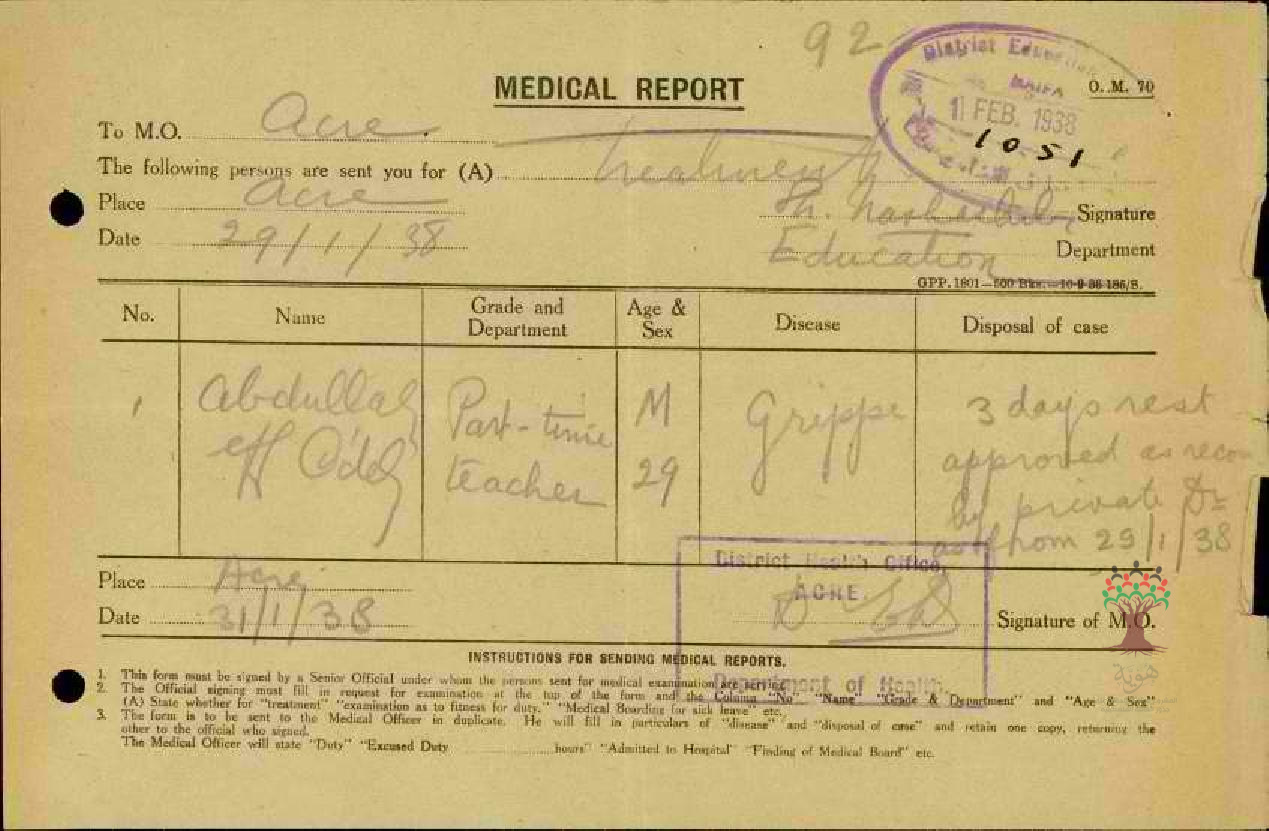 92
District Education
HAIFA
1 FEB. 1938
1051
MEDICAL REPORT
O. M. 70
To M.O. Acre
The following persons are sent you for (A) treatment
Place Acre
Signature
Date 29/1/38
Education Department
GPP. 1801—500 Bks.—10-9-36 186/S.
No. Name Grade and Department Age & Sex Disease Disposal of case
1 Abdullah eff Part-time teacher M 29 Grippe 3 days rest
approved as recom
by private Dr
as from 29/1/38
District Health Office,
ACRE.
Department of Health.
Place Acre
Date 31/1/38
Signature of M.O.
INSTRUCTIONS FOR SENDING MEDICAL REPORTS.
1. This form must be signed by a Senior Official under whom the persons sent for medical examination are serving.
2. The Official signing must fill in request for examination at the top of the form and the Column "No" "Name" "Grade & Department" and "Age & Sex"
(A) State whether for "treatment" "examination as to fitness for duty," "Medical Boarding for sick leave" etc.
3. The form is to be sent to the Medical Officer in duplicate. He will fill in particulars of "disease" and "disposal of case" and retain one copy, returning the
other to the official who signed.
The Medical Officer will state "Duty" "Excused Duty ............ hours" "Admitted to Hospital" "Finding of Medical Board" etc.
هوية